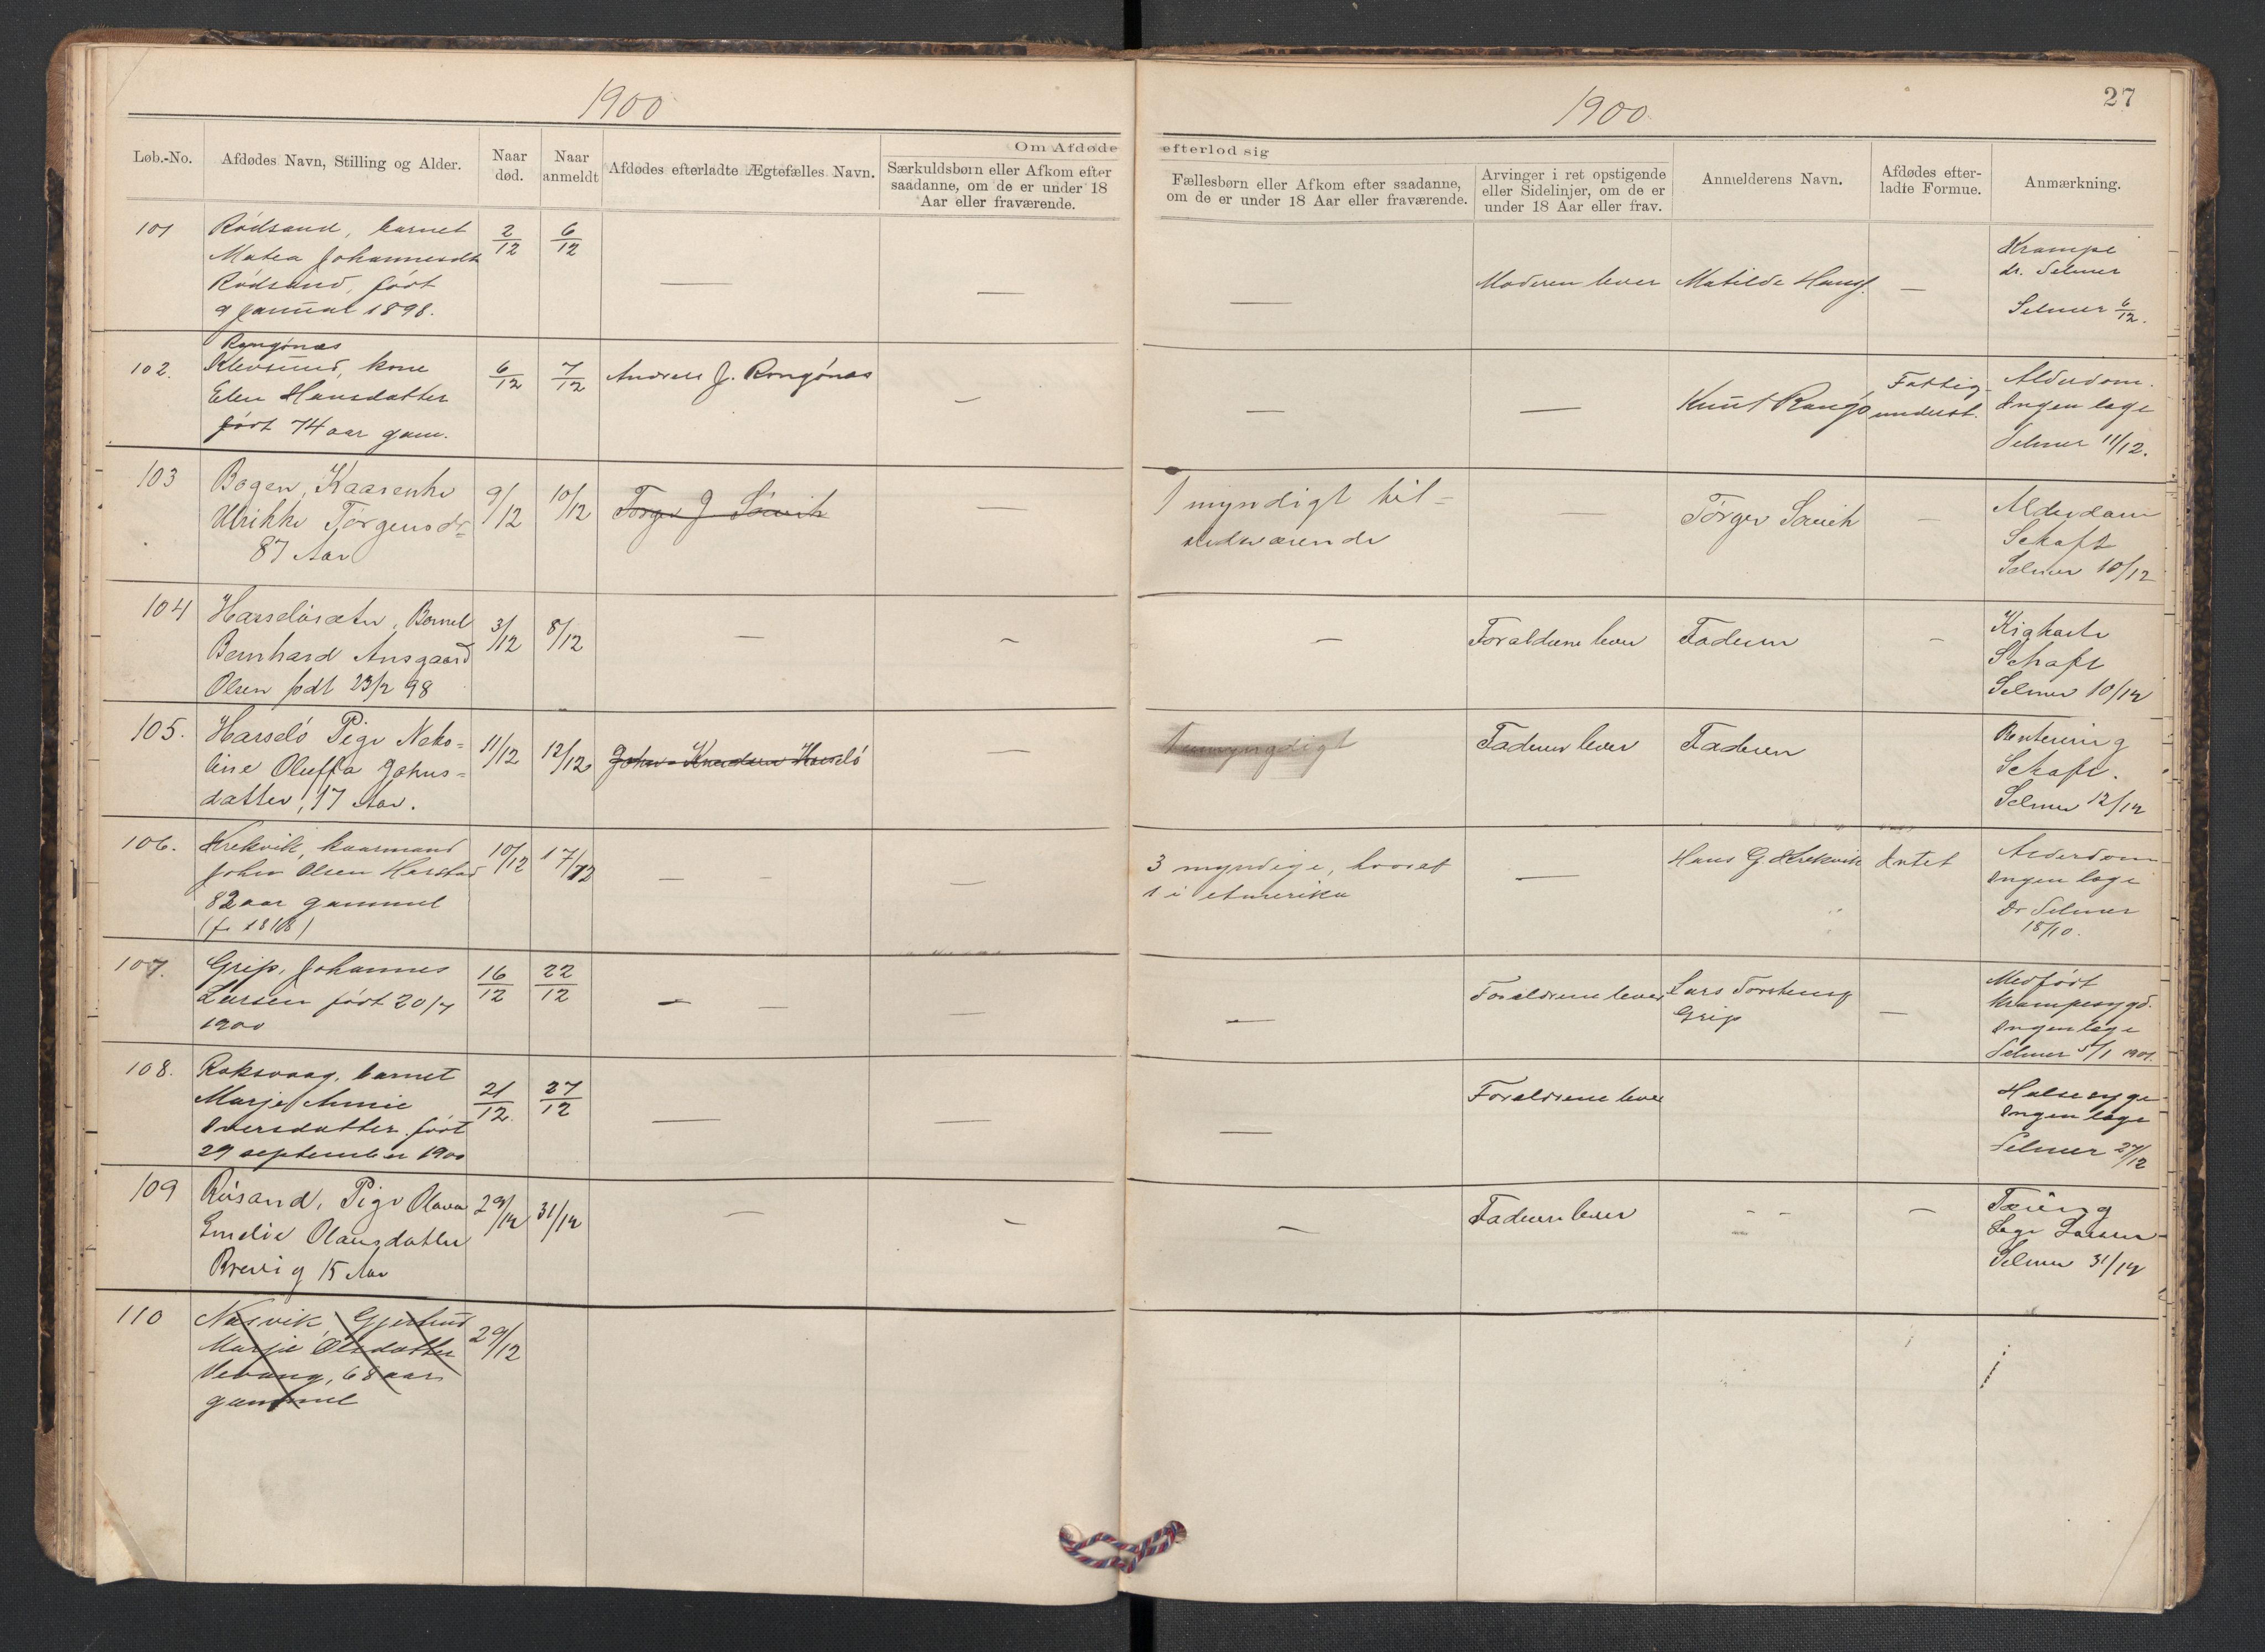 1900
Løb.-No.
Afdødes Navn, Stilling og Alder.
Naar
død.
Naar
anmeldt
Afdødes efterladte Ægtefælles Navn.
Om Afdøde
Særkuldsbørn eller Afkom efter
saadanne, om de er under 18
Aar eller fraværende.
101
Rödsand, barnet
Matea Johannesdt
Rödsand, född
9 januar 1898.
2/12
6/12
102.
Rongönæs
Klevsund, kone
Elen Hansdatter
födt 74 aar gam.
6/12
7/12
Andreas J. Rongönæs
103
Bogen, Kaarenke
Ulrikke Törgensdr
87 Aar
9/12
10/12
Törger J. Sörvik
104
Harselösæter, Barnet
Bernhard Ansgaard
Olsen født 23/2 98
3/12
8/12
105.
Harselö Pige Neko-
line Oluffa Johns-
datter, 17 Aar.
11/12
12/12
John Knudsen Harselö
106.
Krekvik, kaarmand
John Olsen Harstad
82 aar gammel
(f. 1818)
10/12
17/12
107.
Grip, Johannes
Larsen födt 20/7
1900
16/12
22/12
108.
Roksvaag, barnet
Marje Annie
Iversdatter födt
29 september 1900
21/12.
27/12
109
Rösand, Pige Olava
Emelie Olausdatter
Brevig 15 Aar
29/12
31/12
110
Næsvik, Gjertrud
Marje Olsdatter
Vevang, 68 aar
gammel
29/12
1900
27
efterlod sig
Fællesbørn eller Afkom efter saadanne,
om de er under 18 Aar eller fraværende.
Arvinger i ret opstigende
eller Sidelinjer, om de er
under 18 Aar eller frav.
Anmelderens Navn.
Afdødes efter-
ladte Formue.
Anmærkning.
Moderen lever
Matilde Hansf.
Krampe
dr. Selmer
Selmer 6/12.
Knut Rongö
Fattig
underst.
Alderdom.
Ingen læge
Selmer 11/12.
1 myndigt til-
stedværende
Törger Sörvik
Alderdom
Schaft
Selmer 10/12
Forældrene lever
Faderen
Kighoste
Schaft
Selmer 10/12
1 umyngdigt
Faderen lever
Faderen
Schaft.
Selmer 12/12
3 myndige, hvoraf
1 i Amerika
Hans G Krekvik
Intet
Alderdom
Ingen læge
Dr Selmer
18/10.
Forældrene lever
Lars Torstensf
Grip
Medfödt
krampesygd.
Ingen læge
Selmer 5/1 1901.
Forældrene lever
Halsesyge
Ingen læge
Selmer 27/12
Faderen lever
Tæring
Læge Larsen
Selmer 31/12